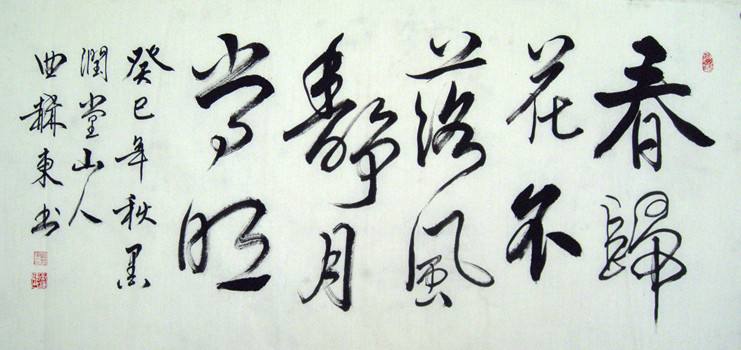 春歸
花不
落風
靜月
常明
癸巳年秋墨
潤堂山人
曲
東书